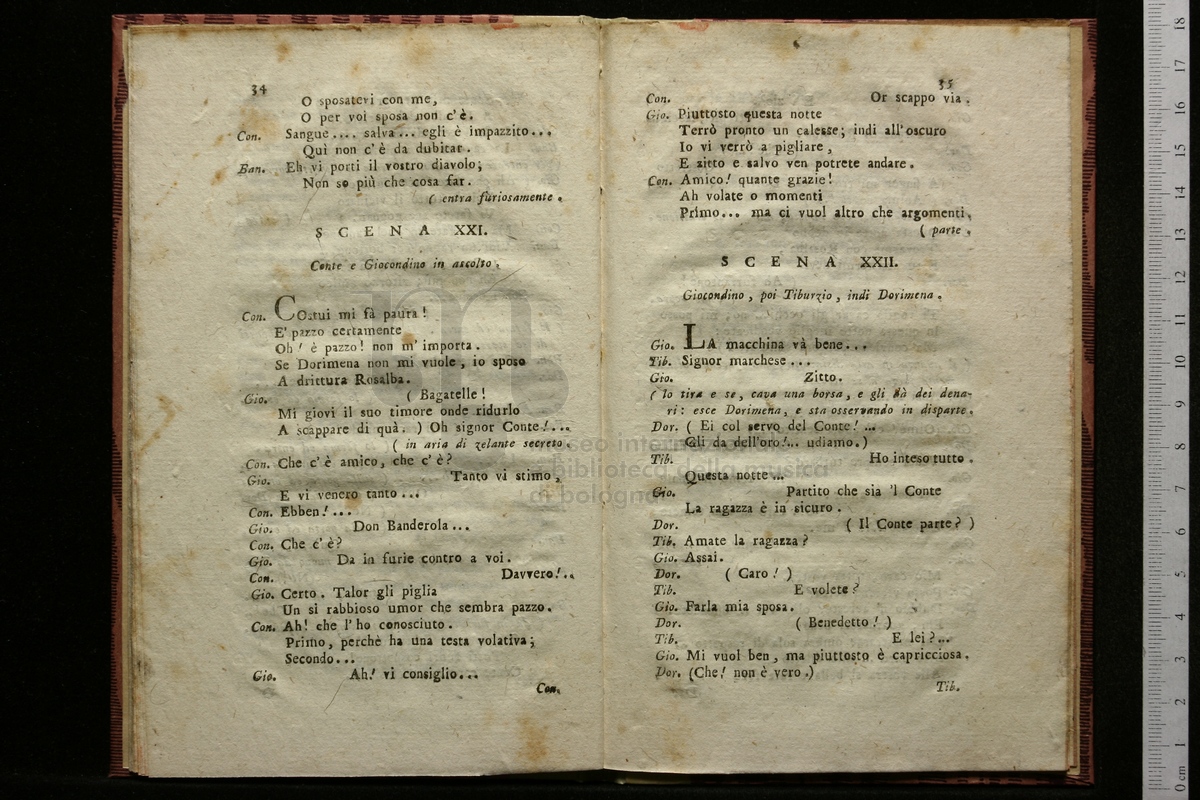 34
O sposatevi con me,
O per voi sposa non c'è.
Con. Sangue.... salva... egli è impazzito...
Quì non c'è da dubitar.
Ban. Eh vi porti il vostro diavolo;
Non so più che cosa far.
( entra furiosamente.
SCENA XXI.
Conte e Giocondino in ascolto.
Con. COstui mi fà paura!
E' pazzo certamente
Oh! è pazzo! non m'importa.
Se Dorimena non mi vuole, io sposo
A drittura Rosalba.
Gio. ( Bagatelle!
Mi giovi il suo timore onde ridurlo
A scappare di quà. ) Oh signor Conte!...
( in aria di zelante secreto.
Con. Che c'è amico, che c'è?
Gio. Tanto vi stimo,
E vi venero tanto...
Con. Ebben!...
Gio. Don Banderola...
Con. Che c'è?
Gio. Da in furie contro a voi.
Con. Davvero!..
Gio. Certo. Talor gli piglia
Un si rabbioso umor che sembra pazzo.
Con. Ah! che l'ho conosciuto.
Primo, perchè ha una testa volativa;
Secondo...
Gio. Ah! vi consiglio...
Con.
35
Con. Or scappo via.
Gio. Piuttosto questa notte
Terrò pronto un calesse; indi all'oscuro
Io vi verrò a pigliare,
E zitto e salvo ven potrete andare.
Con. Amico! quante grazie!
Ah volate o momenti
Primo... ma ci vuol altro che argomenti.
( parte.
SCENA XXII.
Giocondino, poi Tiburzio, indi Dorimena.
Gio. LA macchina và bene...
Tib. Signor marchese...
Gio. Zitto.
( lo tira e se, cava una borsa, e gli dà dei dena-
ri: esce Dorimena, e sta osservando in disparte.
Dor. ( Ei col servo del Conte! ...
Gli da dell'oro!... udiamo.)
Tib. Ho inteso tutto.
Questa notte...
Gio. Partito che sia 'l Conte
La ragazza è in sicuro.
Dor. ( Il Conte parte? )
Tib. Amate la ragazza?
Gio. Assai.
Dor. ( Caro! )
Tib. E volete?
Gio. Farla mia sposa.
Dor. ( Benedetto! )
Tib. E lei?...
Gio. Mi vuol ben, ma piuttosto è capricciosa.
Dor. (Che! non è vero.)
Tib.
museo internazionale
e biblioteca della musica
di bologna
0 cm 1 2 3 4 5 6 7 8 9 10 11 12 13 14 15 16 17 18